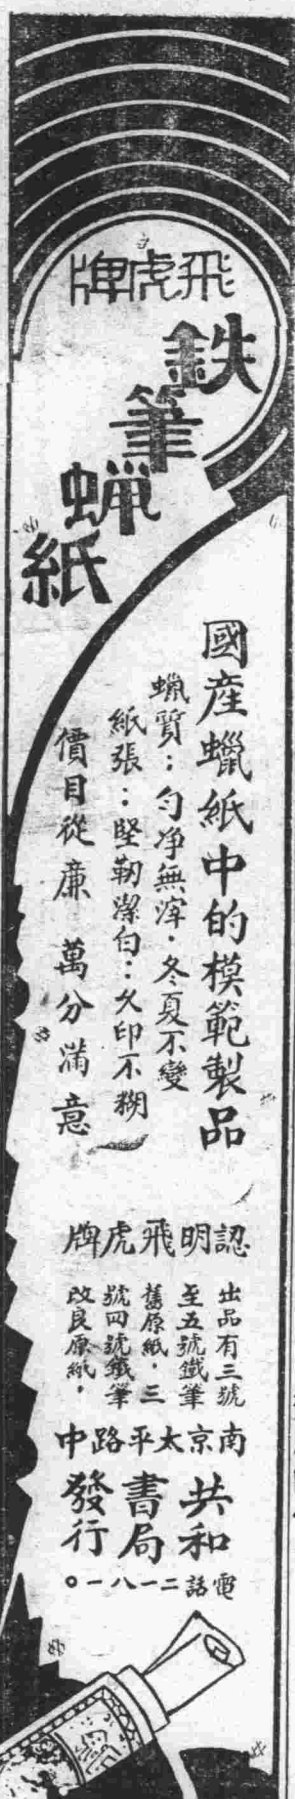 飛虎牌
鉄筆蝋紙
國產蠟紙中的模範製品
蝋質：勻净無滓．冬夏不變
紙張：堅韌潔白：久印不糊
價目從廉　萬分滿意
認明飛虎牌
出品有三號
至五號鐵筆
舊原紙．三
號四號鐵筆
改良原紙．
南京太平路中
共和
書局
發行
電話二一八一〇